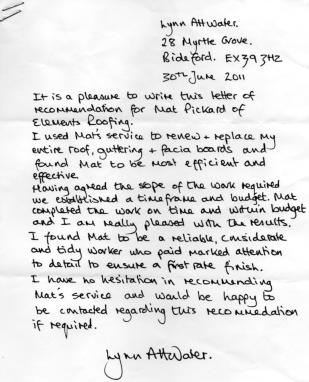 Lynn Attwater.
28 Myrtle Grove.
Bideford. EX39 3HZ
30th June 2011
It is a pleasure to write this letter of
recommendation for Mat Pickard of
Elements Roofing.
I used Mat's service to renew + replace my
entire roof, guttering + facia boards and
found Mat to be most efficient and
effective.
Having agreed the scope of the work required
we established a timeframe and budget. Mat
completed the work on time and within budget
and I am really pleased with the results.
I found Mat to be a reliable, considerate
and tidy worker who paid marked attention
to detail to ensure a first rate finish.
I have no hesitation in recommending
Mat's service and would be happy to
be contacted regarding this recommedation
if required.
Lynn Attwater.